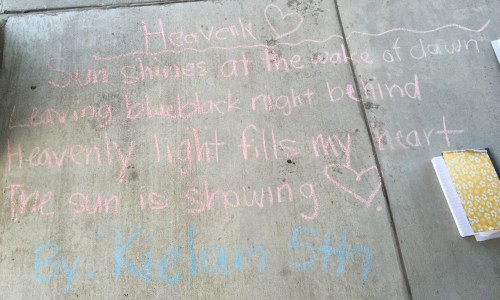 Heavenly
Sun shines at the wake of dawn
Leaving blueblack night behind
Heavenly light fills my heart
The sun is showing
By: Kielan 5th